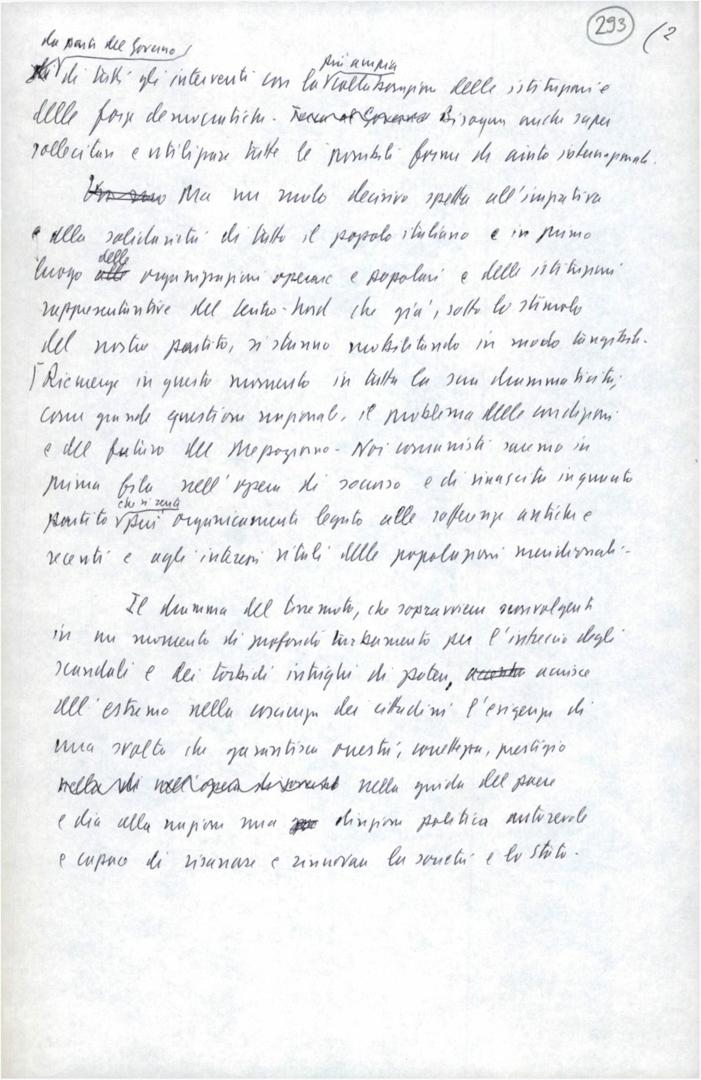 293 (2
da parte del Governo
più ampia
di tutti gli interventi con la collaborazione delle istituzioni e
delle forze democratiche. Bisogna anche saper
sollecitare e utilizzare tutte le possibili forme di aiuto internazionale.
Ma un ruolo decisivo spetta all'iniziativa
e alla solidarietà di tutto il popolo italiano e in primo
delle
luogo organizzazioni operaie e popolari e delle istituzioni
rappresentative del Centro-Nord che già, sotto lo stimolo
del nostro partito, si stanno mobilitando in modo tangibile.
Riemerge in questo momento in tutta la sua drammaticità,
come grande questione nazionale, il problema delle condizioni
e del futuro del Mezzogiorno. Noi comunisti saremo in
prima fila nell'opera di soccorso e di rinascita in quanto
che si sente
partito più organicamente legato alle sofferenze antiche e
recenti e agli interessi vitali delle popolazioni meridionali.
Il dramma del terremoto, che sopravviene
in un momento di profondo turbamento per l'intreccio degli
scandali e dei torbidi intrighi di potere, acuisce
all'estremo nella coscienza dei cittadini l'esigenza di
una svolta che garantisca onestà, correttezza, prestigio
nella guida del paese
e dia alla nazione una direzione politica autorevole
e capace di risanare e rinnovare la società e lo Stato.